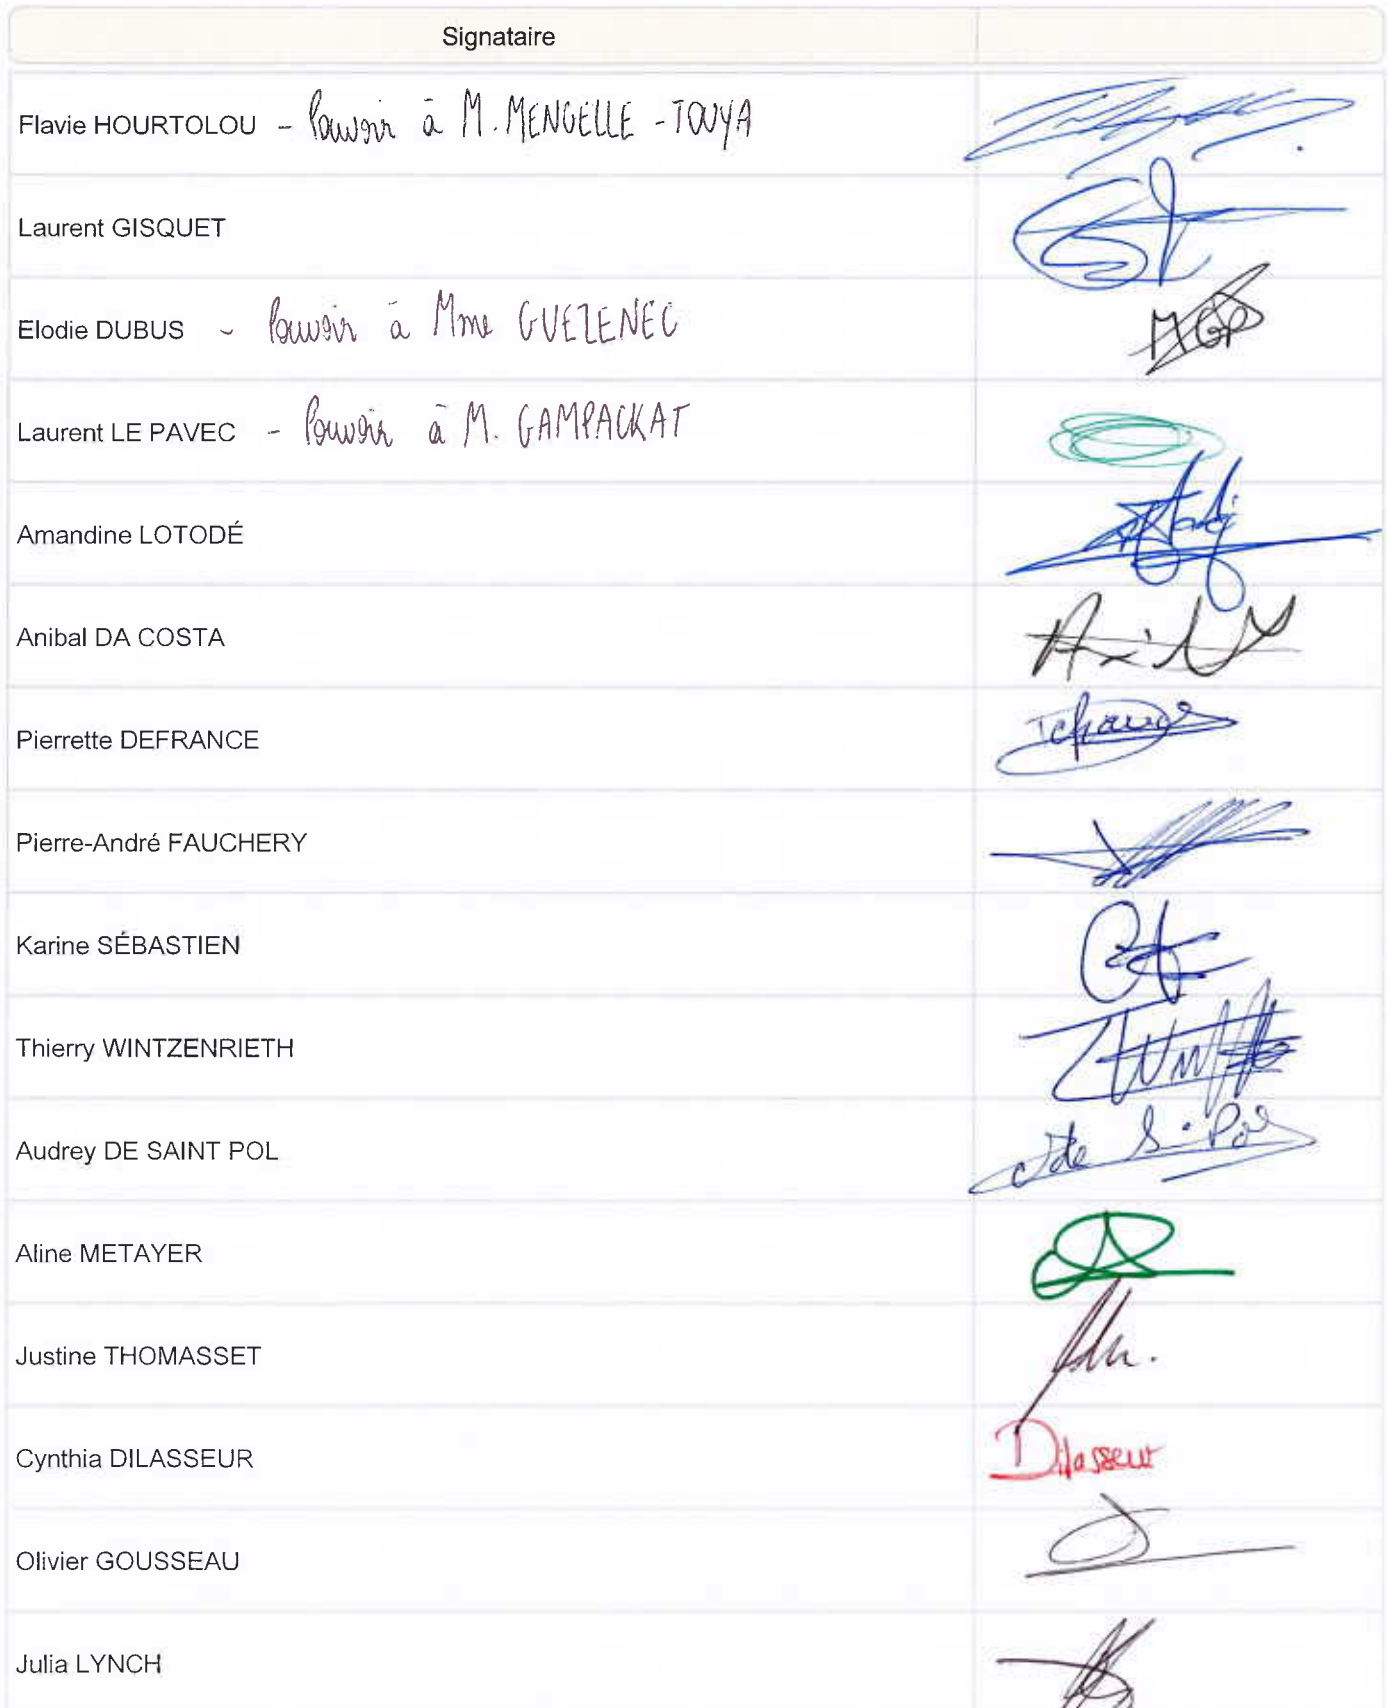 Signataire
Flavie HOURTOLOU - Pouvoir à M. MENGELLE-TOUYA
Laurent GISQUET
Elodie DUBUS - Pouvoir à Mme GUEZENEC
MGP
Laurent LE PAVEC - Pouvoir à M. GAMPACKAT
Amandine LOTODÉ
Anibal DA COSTA
Pierrette DEFRANCE
Pierre-André FAUCHERY
Karine SÉBASTIEN
Thierry WINTZENRIETH
Audrey DE SAINT POL
de S. Pol
Aline METAYER
Justine THOMASSET
Cynthia DILASSEUR
Dilasseur
Olivier GOUSSEAU
Julia LYNCH